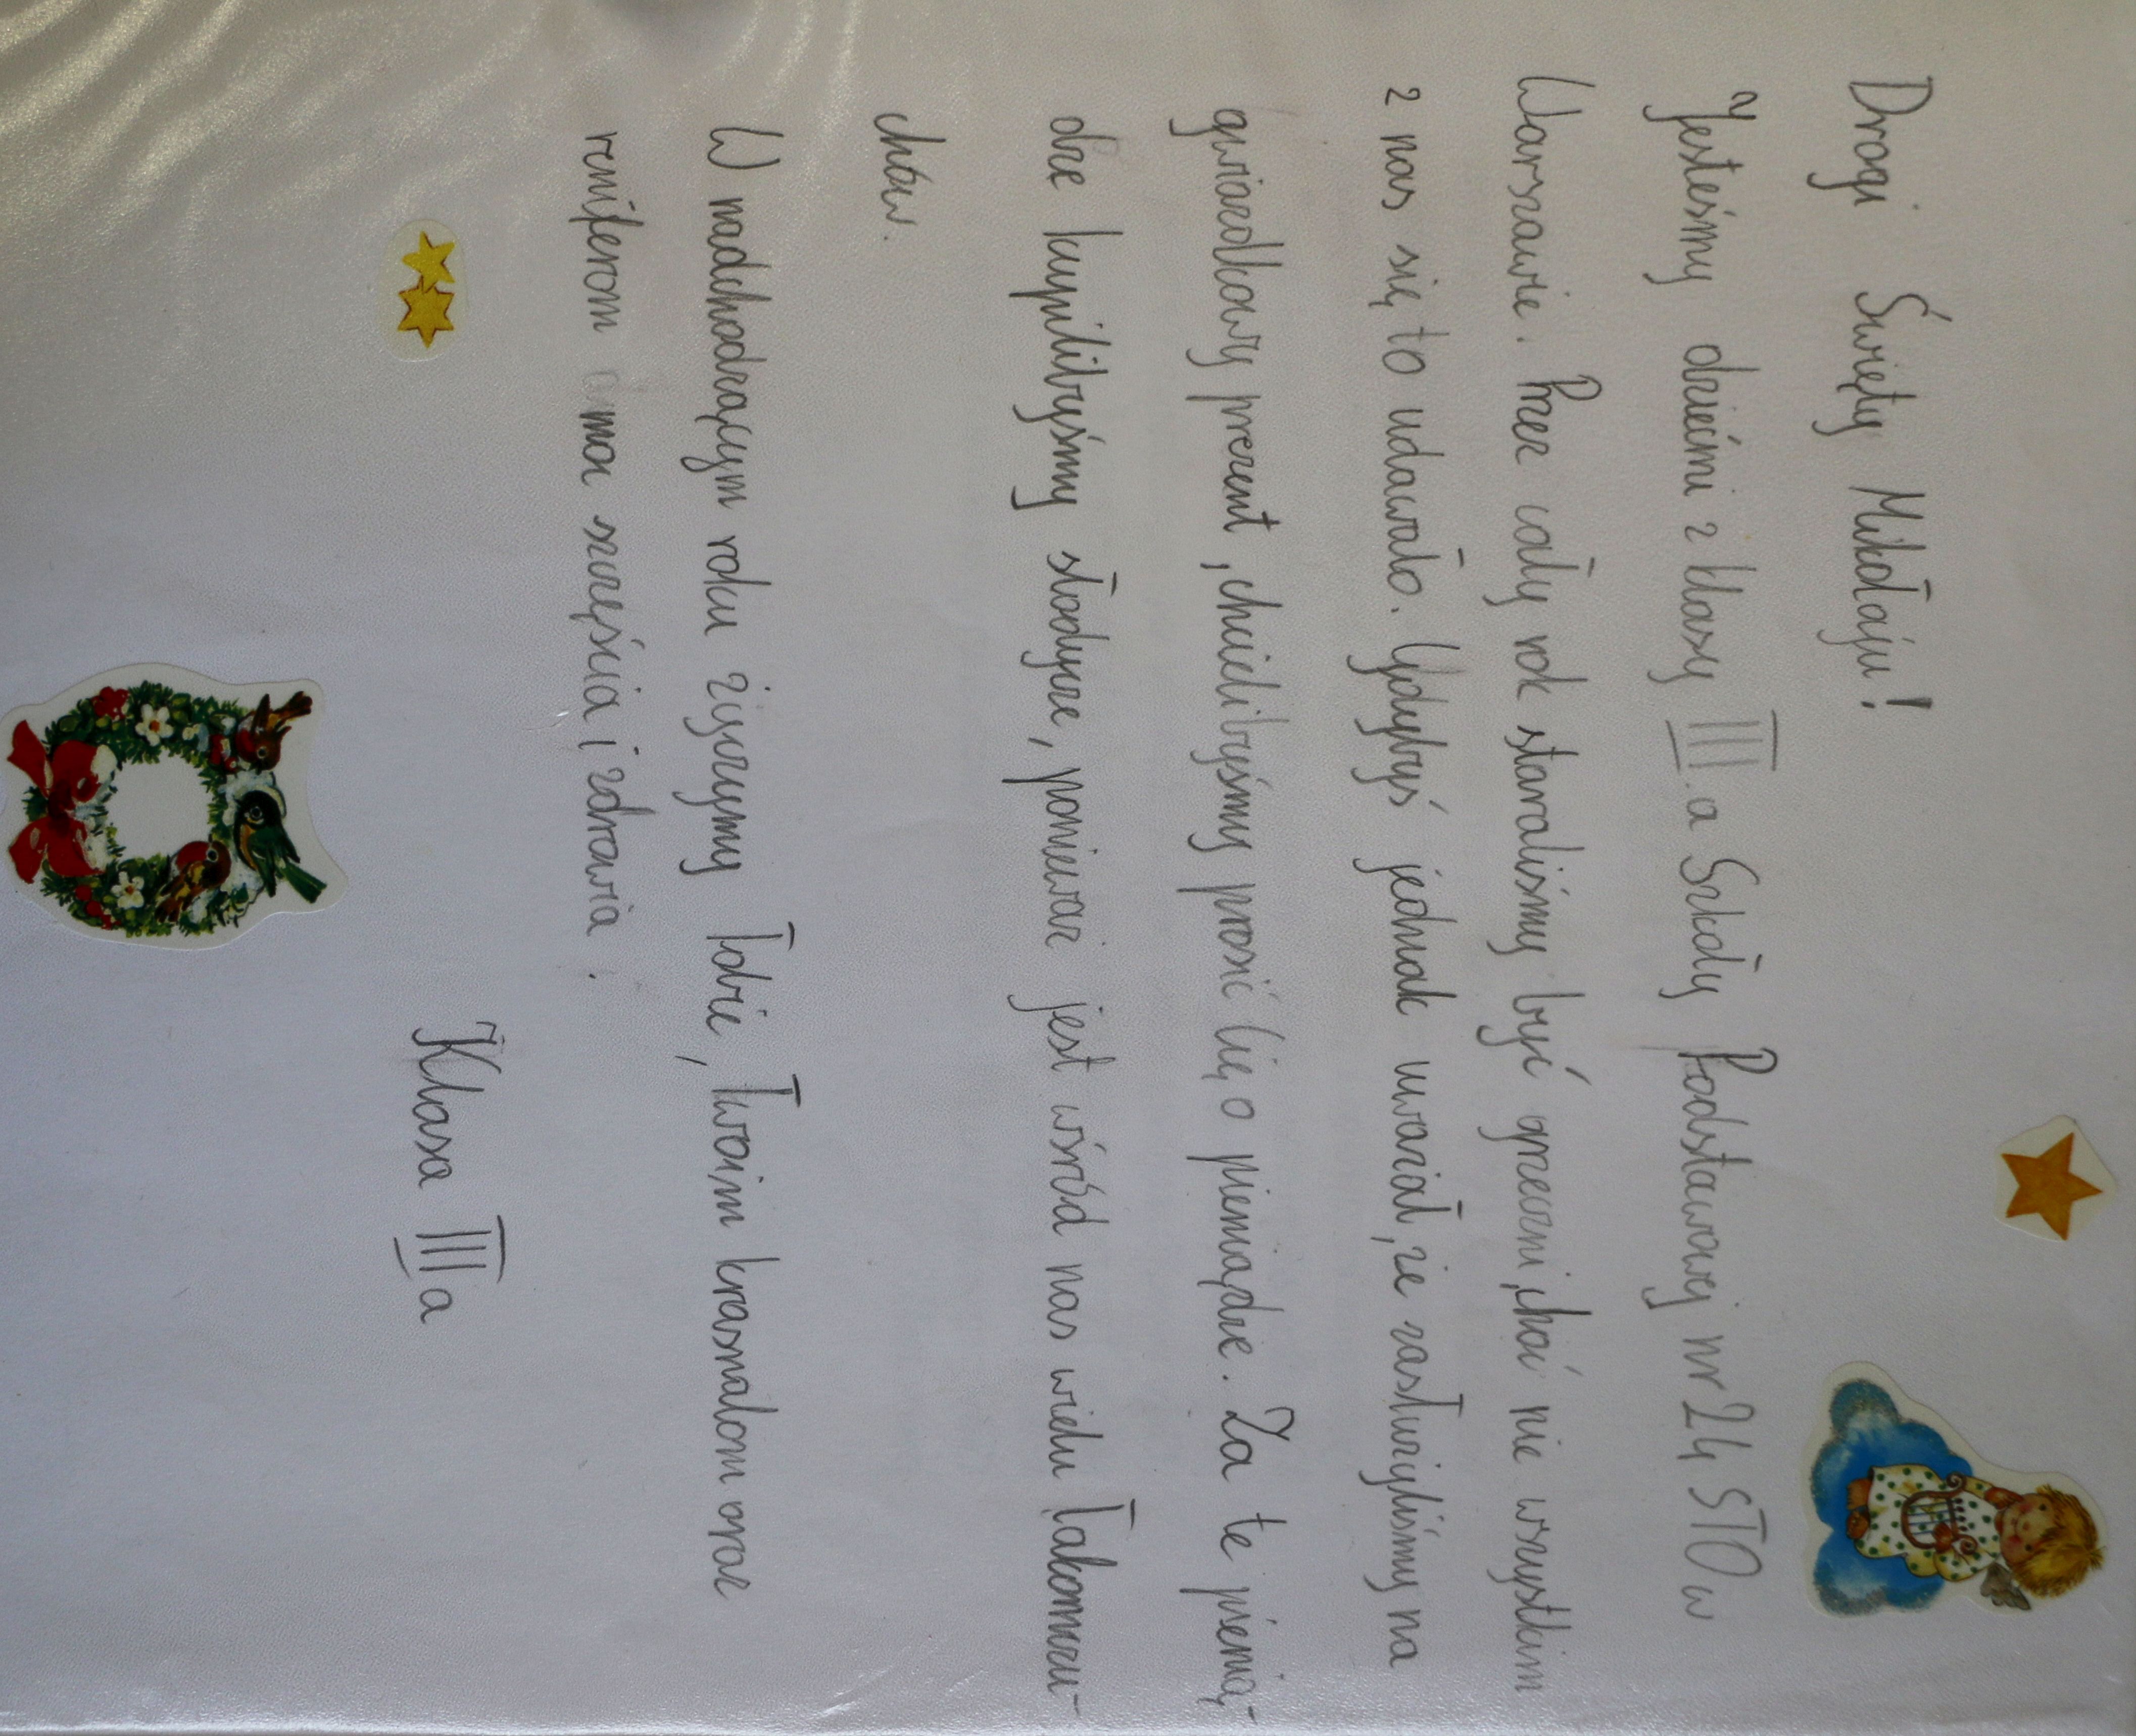 Drogi Święty Mikołaju!
Jesteśmy dziećmi z klasy III a Szkoły Podstawowej nr 24 STO w
Warszawie. Przez cały rok staraliśmy być grzeczni, choć nie wszystkim
z nas się to udawało. Gdybyś jednak uważał, że zasłużyliśmy na
gwiazdkowy prezent, chcielibyśmy prosić Cię o pieniądze. Za te pienią-
dze kupilibyśmy słodycze, ponieważ jest wśród nas wielu łakomczu-
chów.
W nadchodzącym roku życzymy Tobie, Twoim krasnalom oraz
reniferom szczęścia i zdrowia.
Klasa III a